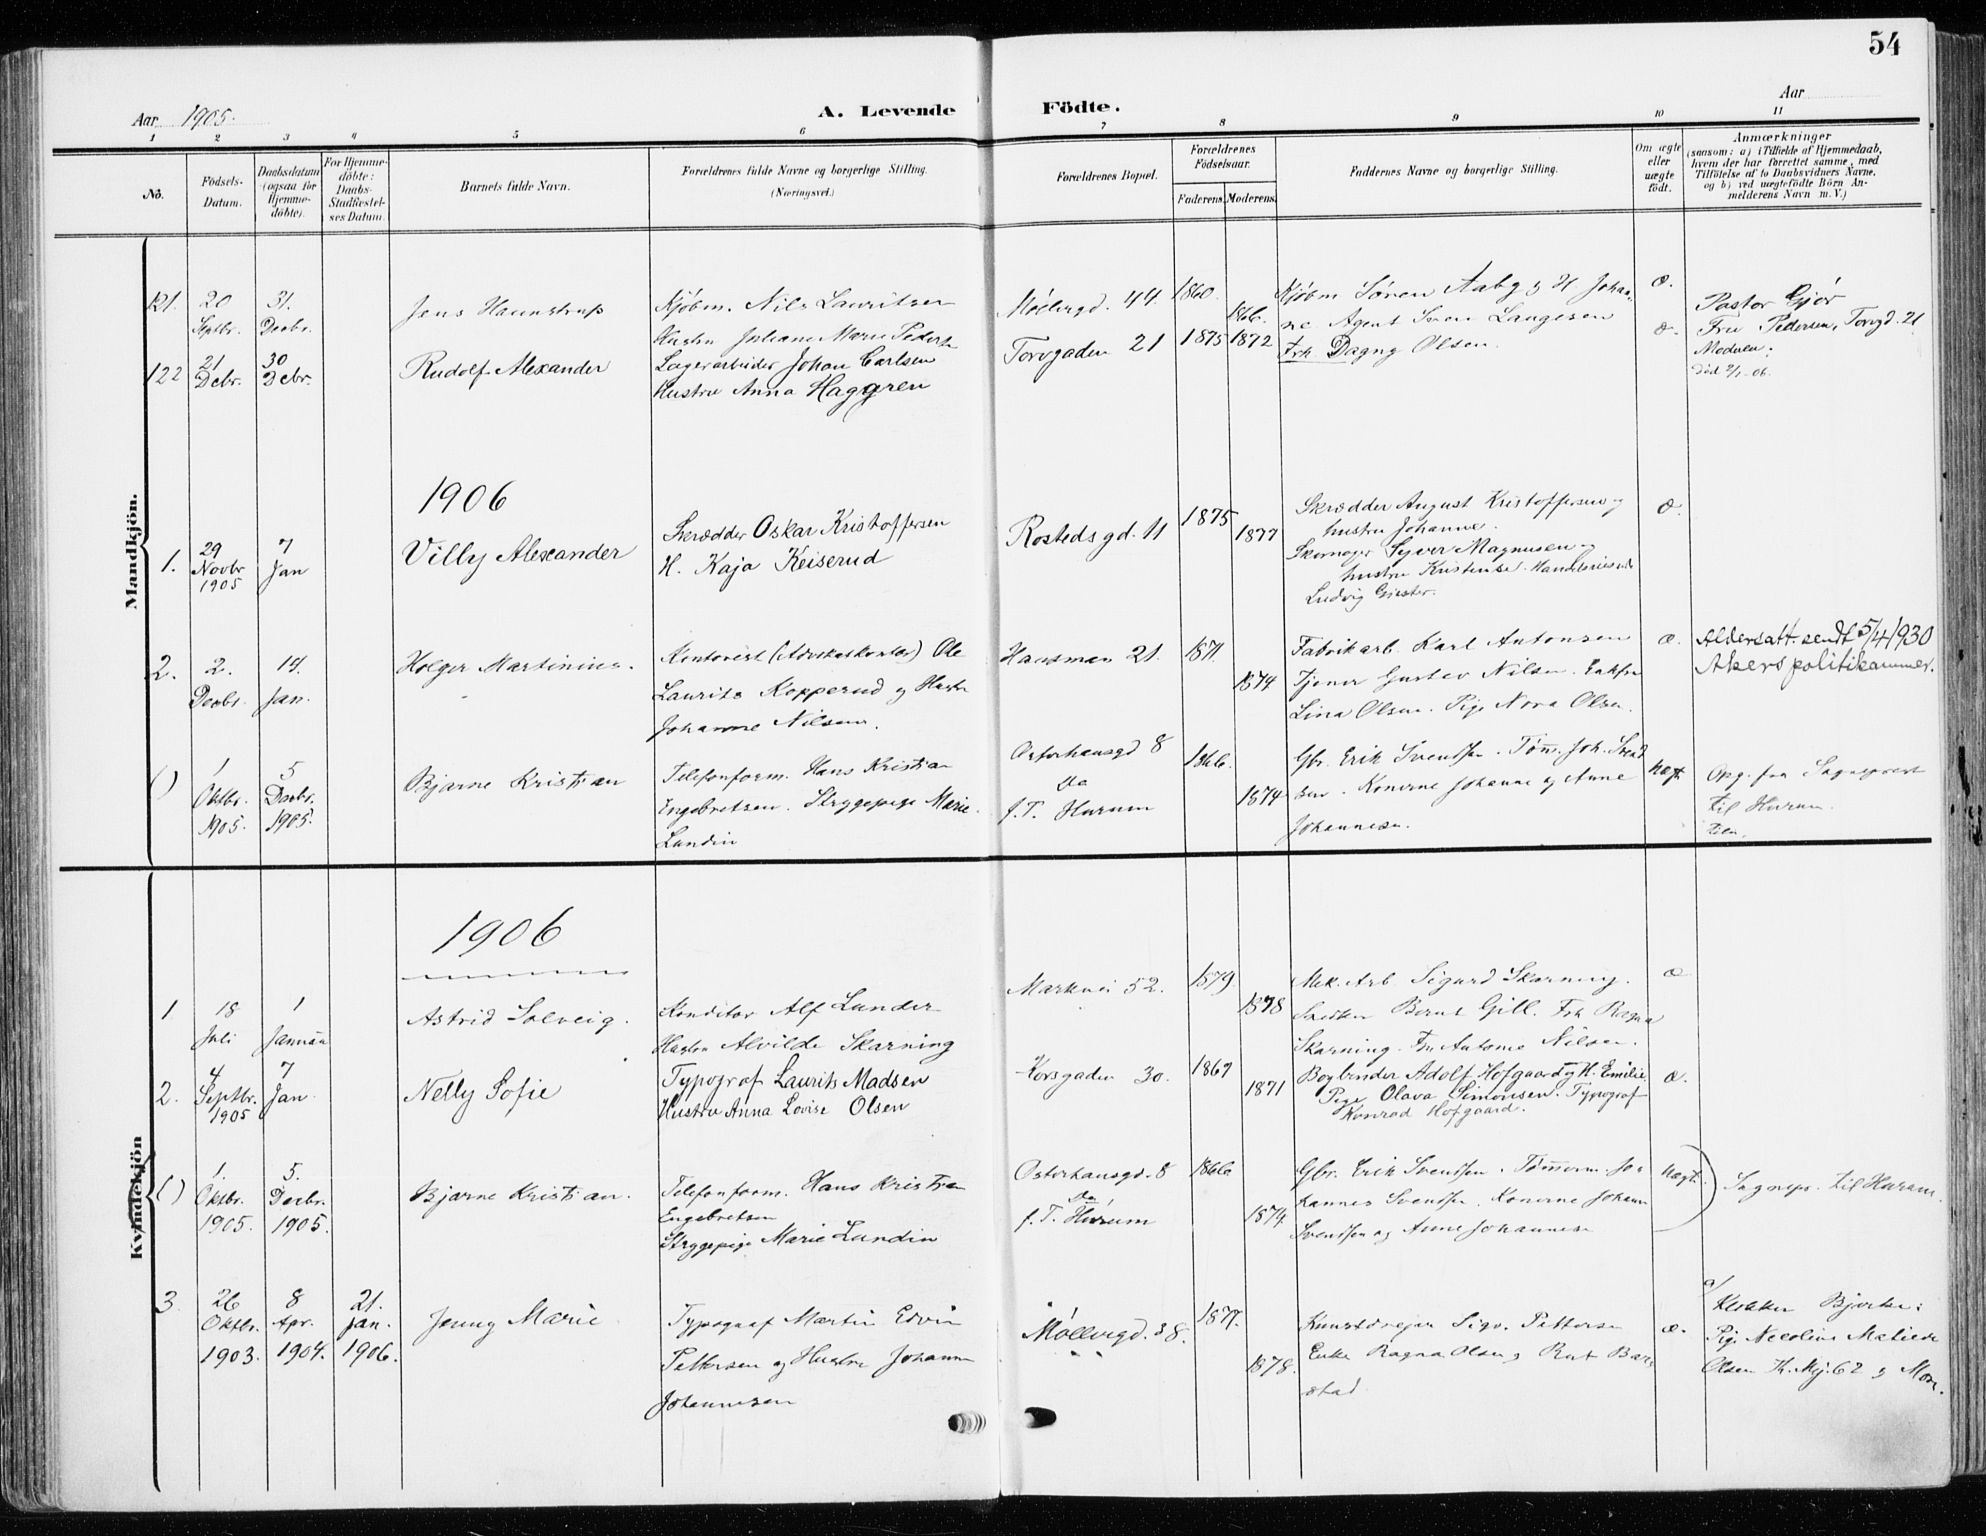 54
Aar 1905.
A. Levende Födte.
Aar
1 2 3 4 5 6 7 8 9 10 11
No.
Födsels-
Datum.
Daabsdatum
(ogsaa for
Hjemme-
döbte).
For Hjemme-
döbte:
Daabs-
Stadfæstel-
ses Datum.
Barnets fulde Navn.
Forældrenes fulde Navne og borgerlige Stilling.
(Næringsvei.)
Forældrenes Bopæl.
Forældrenes
Födselsaar.
Faderens. Moderens.
Faddernes Navne og borgerlige Stilling.
Om ægte
eller
uægte
födt.
Anmærkninger
(saasom: a) i Tilfælde af Hjemmedaab,
hvem der har forrettet samme, med
Tilföielse af to Daabsvidners Navne,
og b) ved uægtefödte Börn An-
melderens Navn m. V.)
Mandkjön.
121.
20
Septbr.
31.
Decbr.
Jens Haunstrup
Kjøbm. Nils Lauritsen
Hustru Juliane Marie Peders
Møllergd. 44.
1860.
1866.
Kjøbm Søren Aaby og H Johan-
ne. Agent Sven Laugesen
æ.
122
21
Debr.
30
Debr.
Rudolf Alexander
Lagerarbeider Johan Carlsen
Hustru Anna Haggren
Torvgaden 21
1875
1872
Frk. Dagny Olsen.
æ.
Pastor Gjör
Fru Pedersen, Torvgd. 21
Moderen.
død 2/1-06.
1906
1.
29
Novbr
1905
7
Jan
Villy Alexander
Skrædder Oskar Kristoffersen
H. Kaja Keiserud
Rostedsgd. 11
1875
1877
Skrædder August Kristoffersen og
hustru Johanne.
Skomager Syver Magnusen og
hustru Kristense. Handelsreisende
Ludvig
æ.
2.
2.
Decbr.
14.
Jan.
Holger Martinius.
Kontorist (Advokatkontor) Ole
Laurits Kopperud og Hustru
Johanne Nilsen.
Hausman 21.
1871.
1874
Fabrikarb. Karl Antonsen
Tjener Gustav Nilsen. Enkfru
Lina Olsen. Pige Nora Olsen.
æ.
Aldersatt. sendt 5/4 1930
Akers politikammer.
()
1
Oktbr.
1905.
5
Decbr.
1905.
Bjarne Kristian
Telefonform. Hans Kristian
Engebretsen. Strygepige Marie
Lundin
Osterhausgd 8
Da
f. T. Hurum
1866.
1874
Gbr. Erik Svendsen. Tøm. Joh. Svend
sen. Konerne Johanne og Anne
Johannesen.
uægt.
Opg. fra Sogneprest
til Hurum.
Kyndekjön
1906
1
18
Juli
1
Januar
Astrid Solveig.
Konditor Alf Lunder
Hustru Alvilde Skarning
Markvei 52.
1879.
1878
Mek. Arb. Sigurd Skarning.
Snedker Bernt Gill. Frk Ragna
Skarning. Fru Antonie Nilsen.
æ
2.
4
Septbr.
1905
7
Jan.
Nelly Sofie
Typograf Laurits Madsen
Hustru Anna Lovise Olsen
Korsgaden 30.
1867
1871
Bogbinder Adolf Hofgaard og H. Emilie.
Pige Olava Simonsen. Typograf
Konrad Hofgaard.
æ.
()
1.
Oktbr.
1905.
5.
Decbr.
1905.
Bjarne Kristian.
Telefonform. Hans Kristian
Engebretsen
Strygepige Marie Lundin
Osterhausgd. 8
Da
f. T. Hurum
1866
1874
Gbr. Erik Svendsen. Tømmerm. Jo-
hannes Svendsen. Konerne Johanne
Svendsen og Anne Johannesen
uægt.
Sognepr. til Hurum.
3.
26
Oktbr.
1903.
8
Apr.
1904.
21.
Jan.
1906.
Jenny Marie
Typograf Martin Edvin
Pettersen og Hustru Johanne
Johannesen
Møllergd. 38.
1877.
1878.
Kunstdreier Sigv. Pettersen
Enke Ragna Olsen og Rut Bar
stad
æ.
a/
Klokker Bjerke:
Pige Nicoline Matilde
Olsen K. Mj. 62 og Mor.